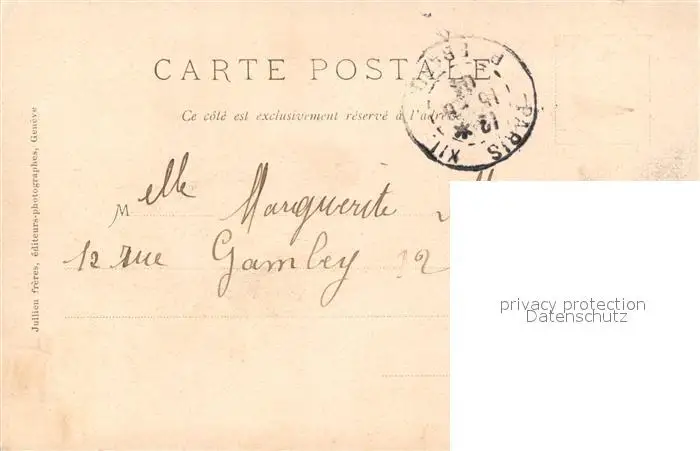 CARTE POSTALE
Ce côté est exclusivement réservé à l'adresse
Melle Marguerite
12 rue Gambey 12
Jullien frères, éditeurs-photographes, Genève
PARIS XII
15
12
privacy protection
Datenschutz